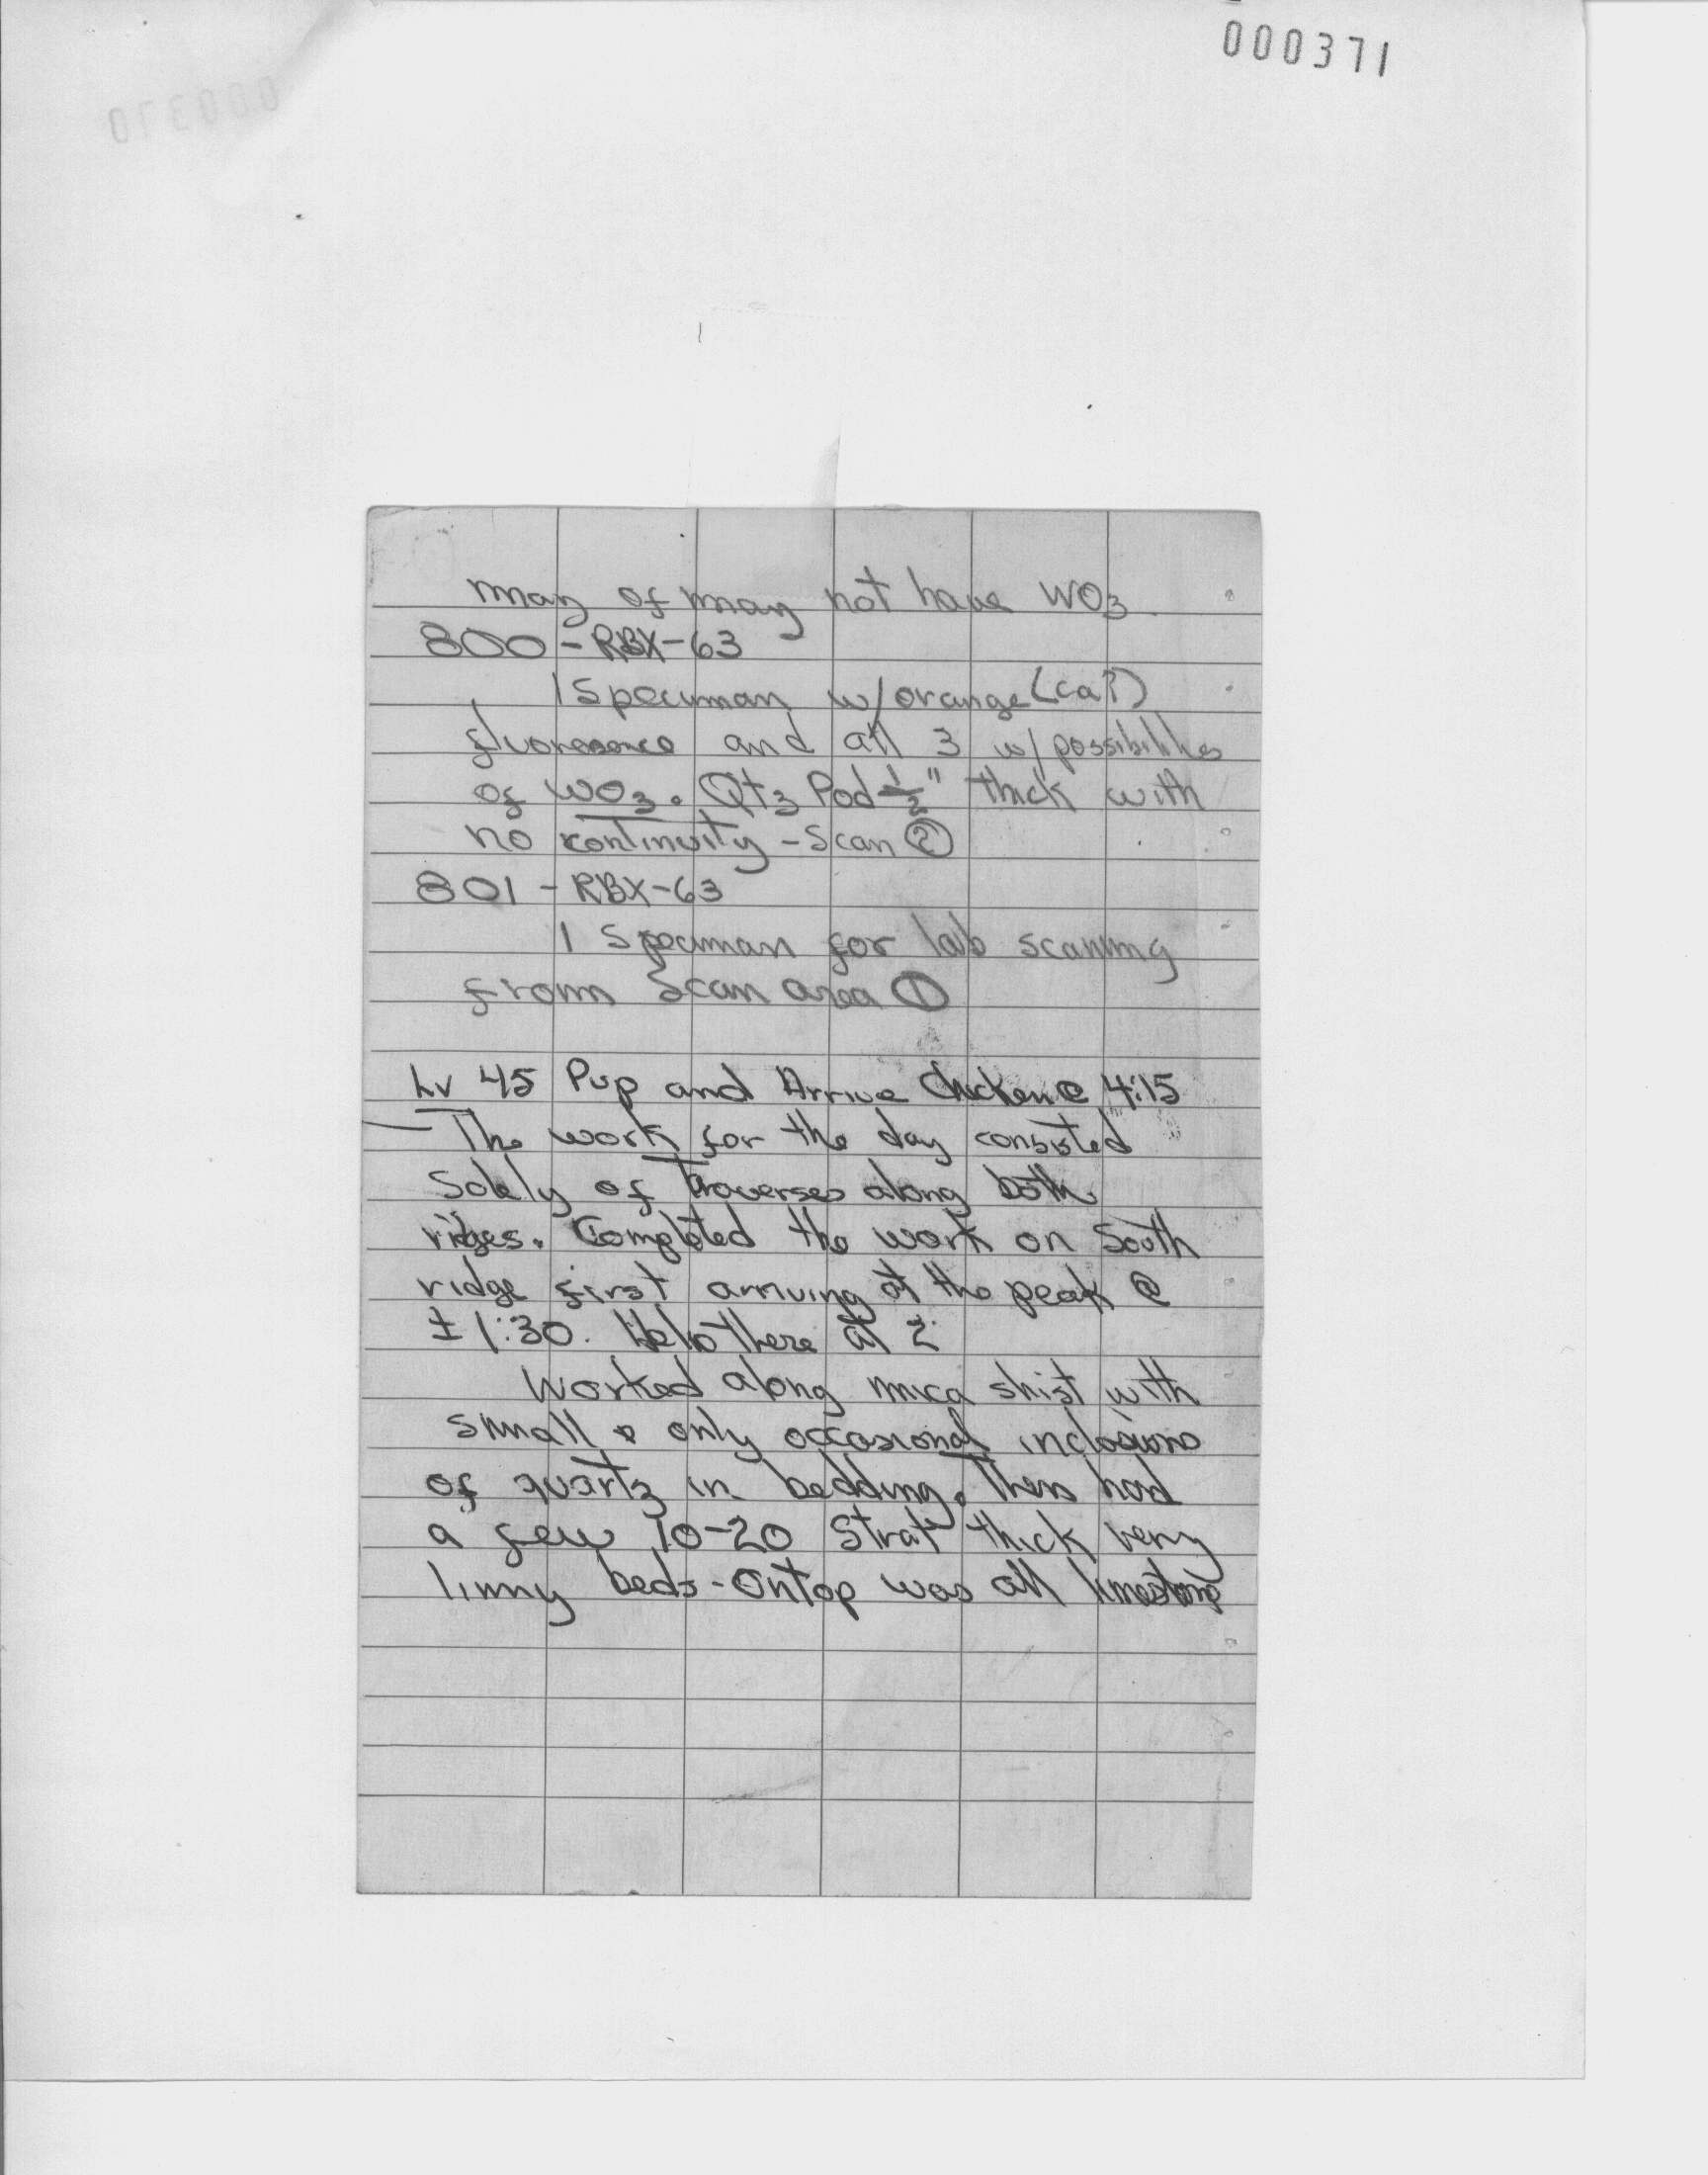 000371
may of may not have WO3
800 - RBX-63
1 Specuman w/orange (ca?)
fluoresence and all 3 w/ possibilities
of WO3. Qtz Pod 1/2" thick with
no continuity - Scan ②
801 - RBX-63
1 Specuman for lab scanning
from Scan area ①
Lv 45 Pup and Arrive Chicken @ 4:15
— The work for the day consisted
Solely of Traverses along both
ridges. Completed the work on South
ridge first arriving at the peak @
± 1:30. Helo there at 2
Worked along mica shist with
small & only occasional inclusions
of quartz in bedding. Then had
a few 10-20 Strat thick very
limy beds - On top was all limestone